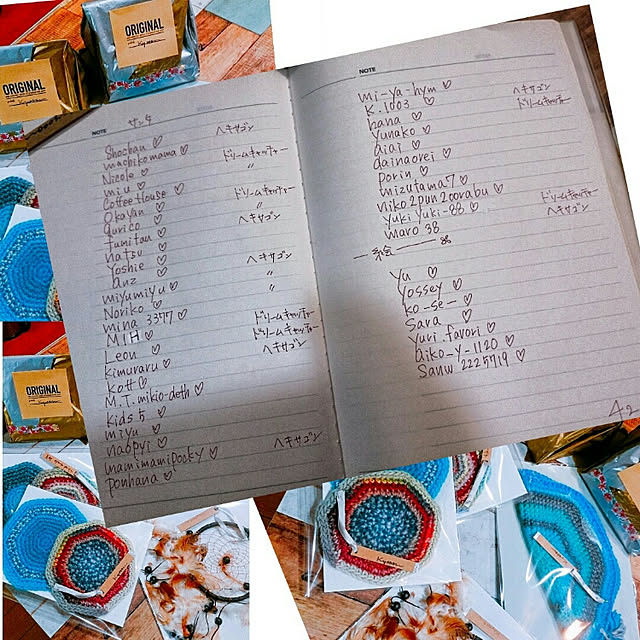 ORIGINAL
ORIGINAL
NOTE サンタ
Shochan♡ ヘキサゴン
machikomama♡
Nicole♡ ドリームキャッチャー
miu♡ 〃
Coffee House♡
Okayan♡ ドリームキャッチャー
aurico♡ 〃
fumitan♡ ヘキサゴン
natsu♡
Yoshie♡
anz♡ ヘキサゴン
miyumiyu♡ 〃
Noriko♡ 〃
mina 3377♡
MIH♡ ドリームキャッチャー
Leon♡ ドリームキャッチャー
kimuraru♡ ヘキサゴン
kott♡
M.T.mikio-deth♡
kids 5♡
miyu♡
naopyi♡
mamimamipocky♡ ヘキサゴン
ponhana♡
NOTE
mi-ya-hym♡
K.1003♡ ヘキサゴン
hana♡ ドリームキャッチャー
Yunako♡
aiai♡
dainaorei♡
Porin♡
mizutama7♡
niko2pun2oorabu♡
yuki yuki-88♡ ドリームキャッチャー
maro 38 ヘキサゴン
一 絵
Yu♡
Yossey♡
ko-se-♡
Sara♡
Yuri.favori♡
aiko-y-1120♡
Sanw 2225719♡
42
ORIGINAL